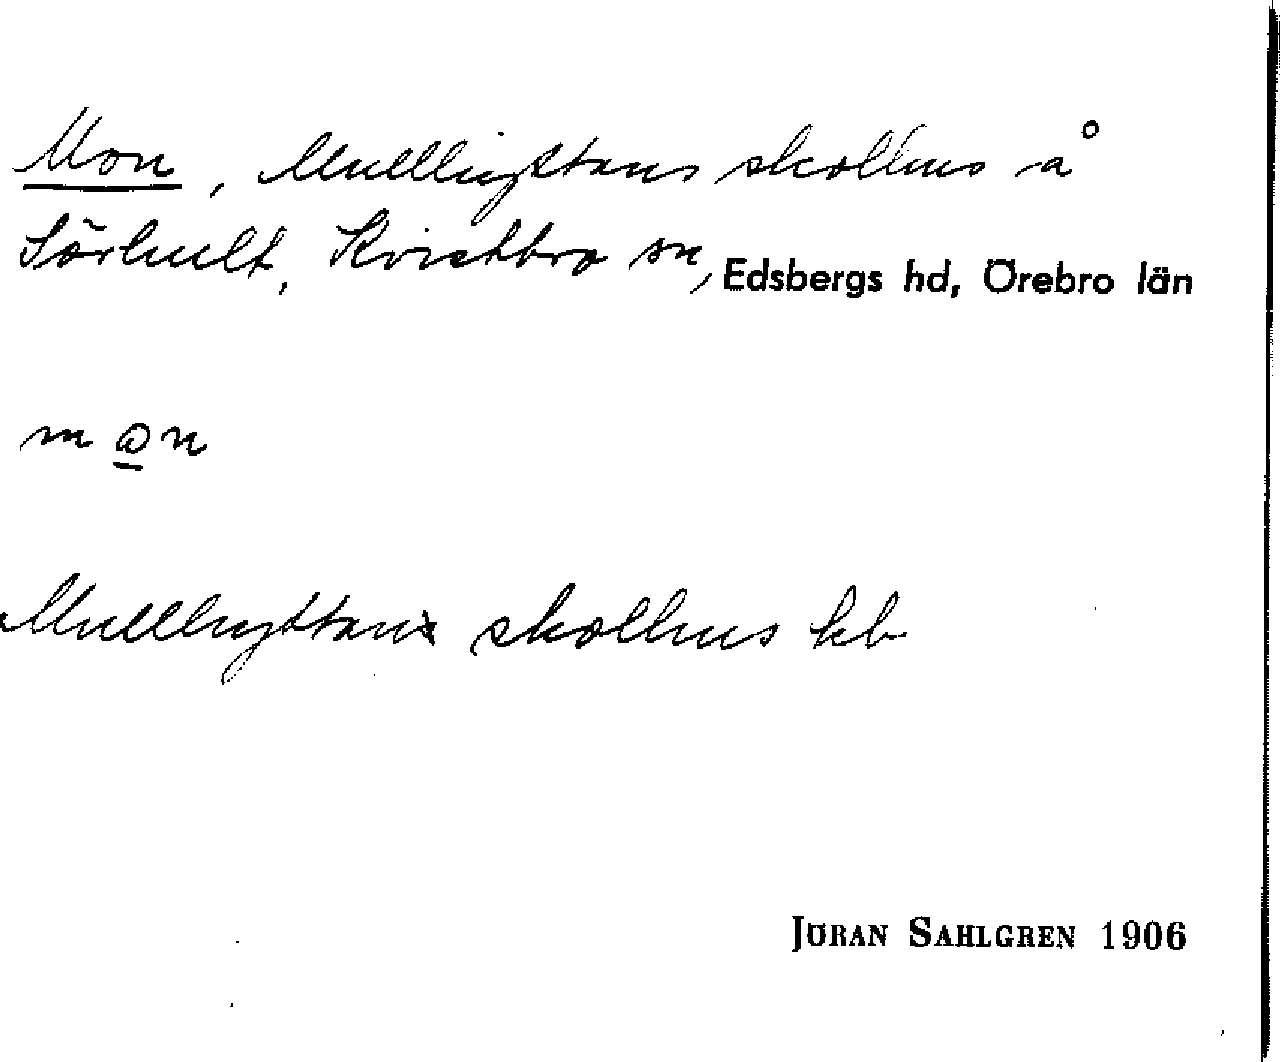 Mon, Mullhyttans skolhus å
Sörhult, Kvistbro sn, Edsbergs hd, Örebro län
mon
Mullhyttans skolhus kb
JÖRAN SAHLGREN 1906